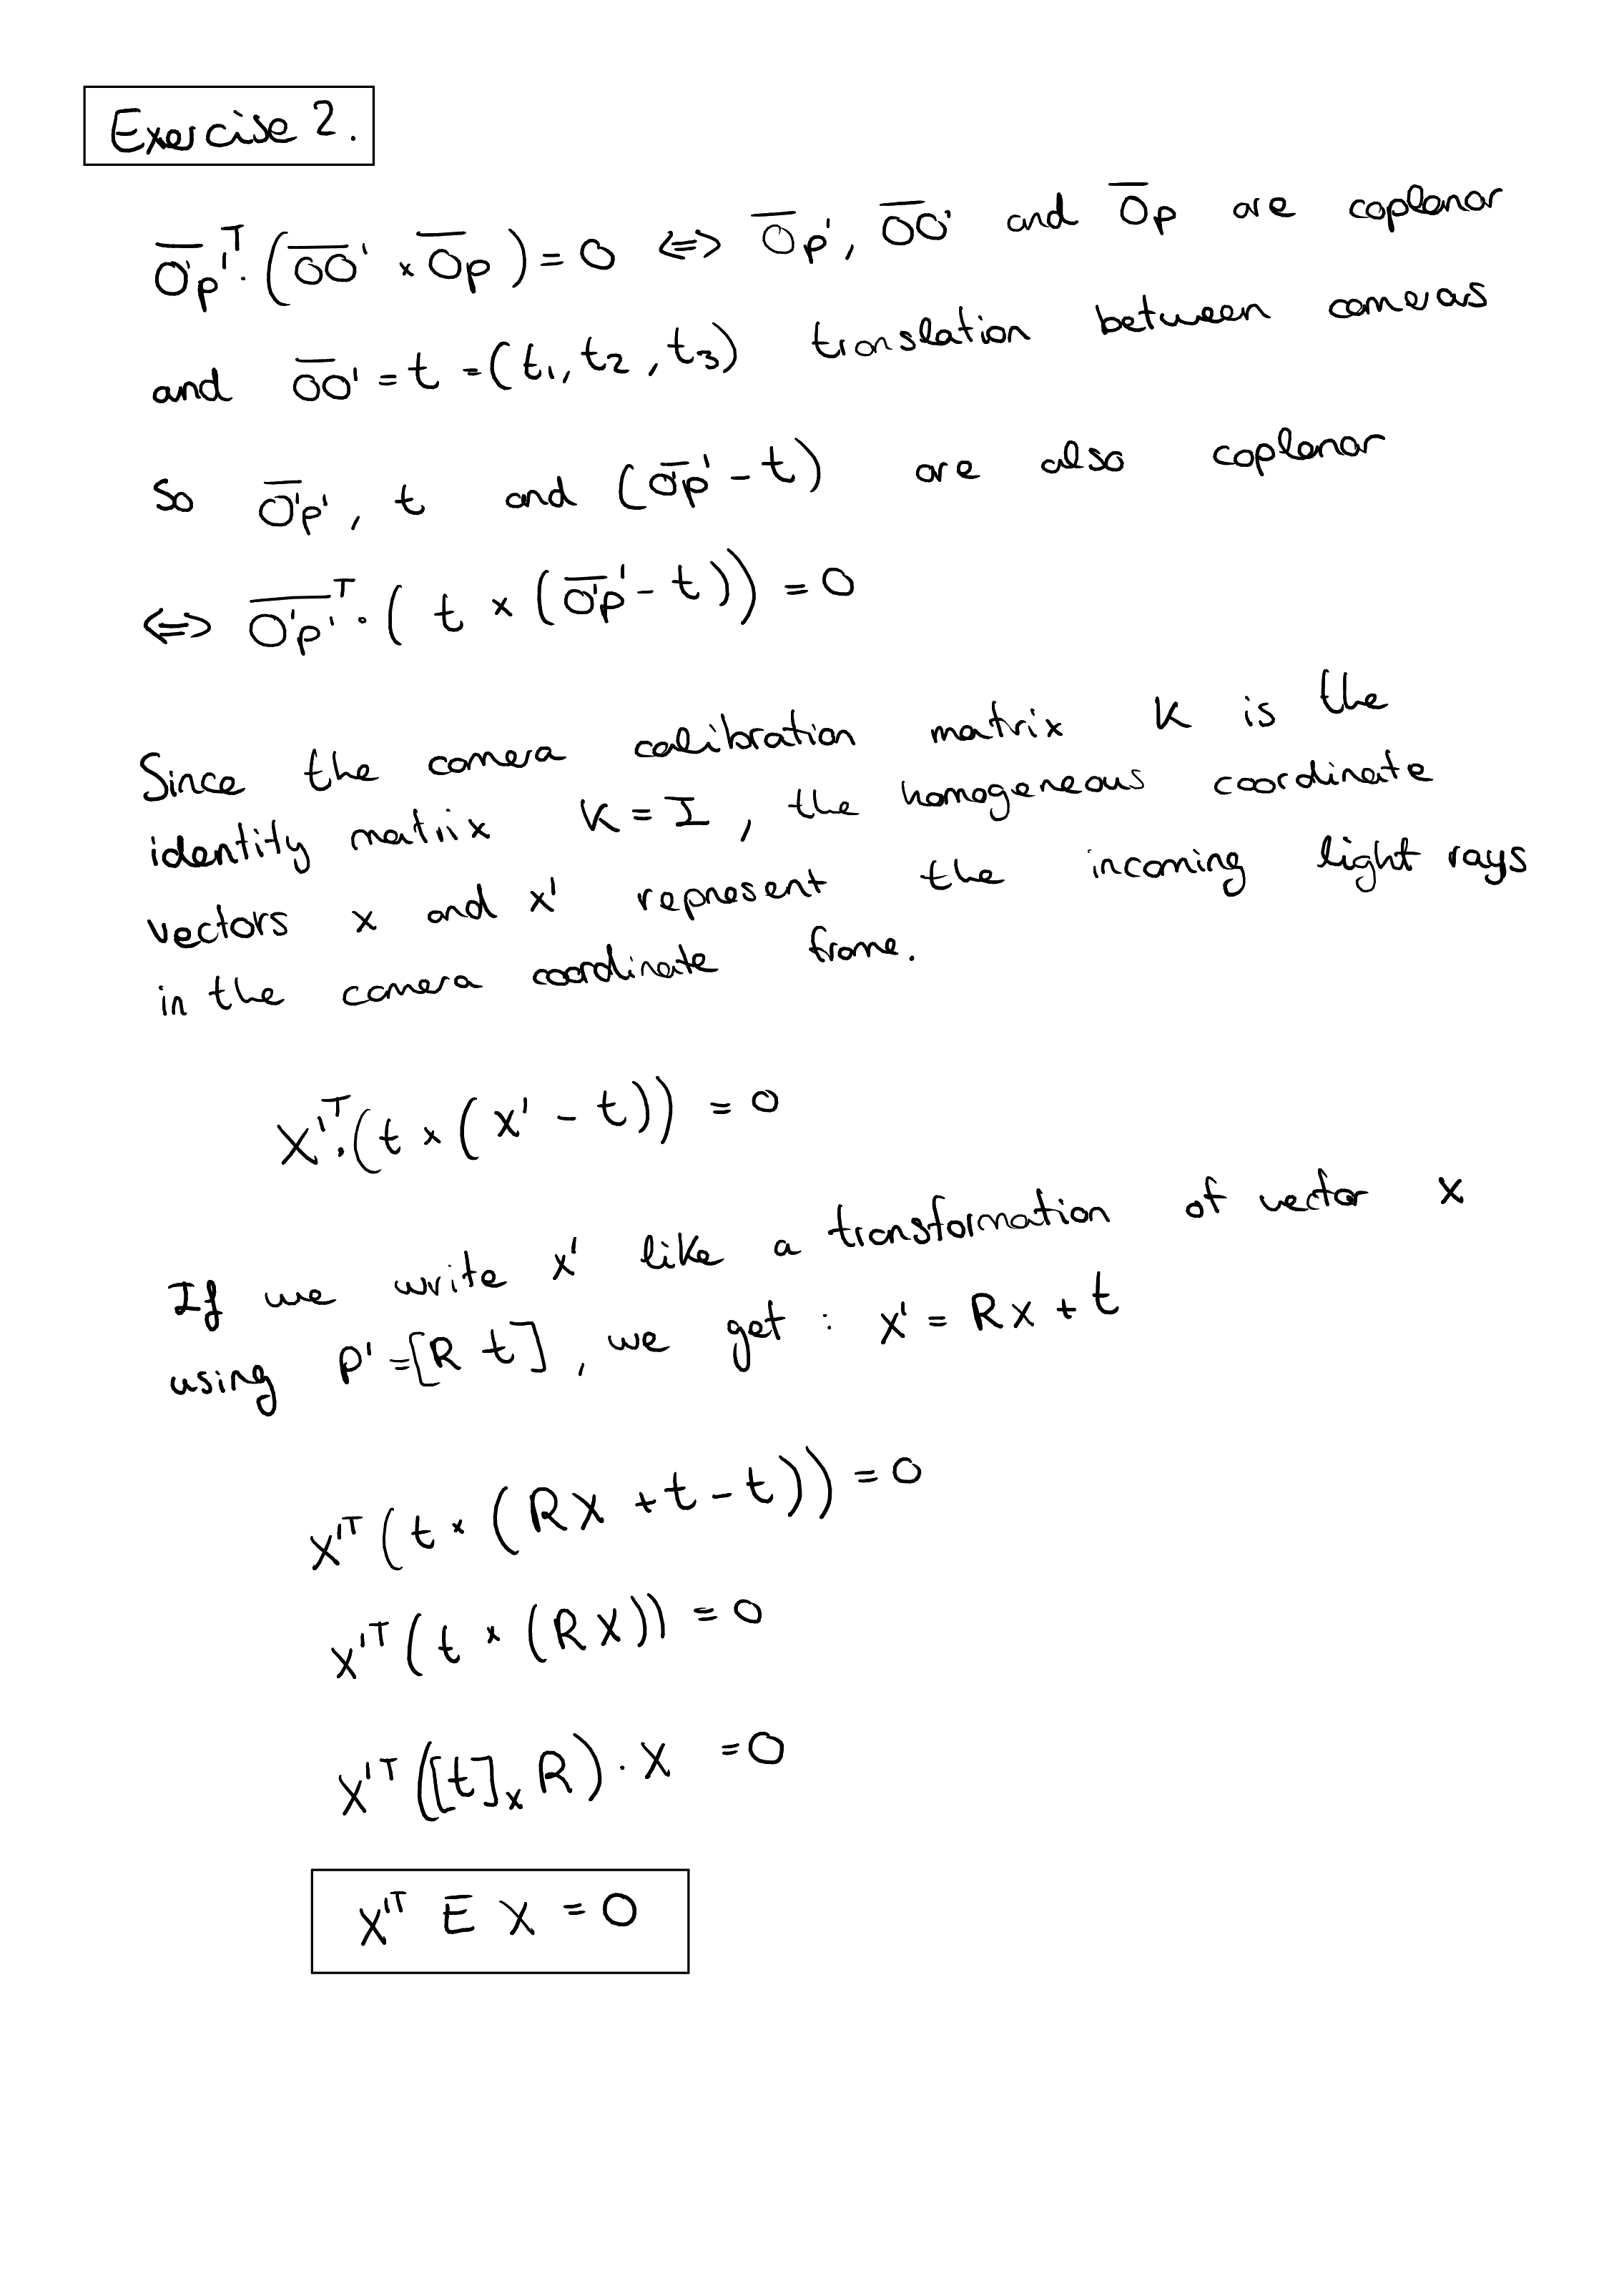 Exercise 2.
O̅'p'ᵀ · (O̅O̅' × O̅p) = 0 <=> O̅p', O̅O̅' and O̅p are coplanar
and O̅O̅' = t = (t₁, t₂, t₃) translation between cameras
So O̅'p', t and (O̅'p' - t) are also coplanar
<=> O̅'p'ᵀ · (t × (O̅'p' - t)) = 0
Since the camera calibration matrix K is the
identity matrix K = I, the homogeneous coordinate
vectors x and x' represent the incoming light rays
in the camera coordinate frame.
x'ᵀ · (t × (x' - t)) = 0
If we write x' like a transformation of vector x
using P' = [R t], we get : x' = Rx + t
x'ᵀ (t × (Rx + t - t)) = 0
x'ᵀ (t × (Rx)) = 0
x'ᵀ ([t]ₓ R) · x = 0
x'ᵀ E x = 0